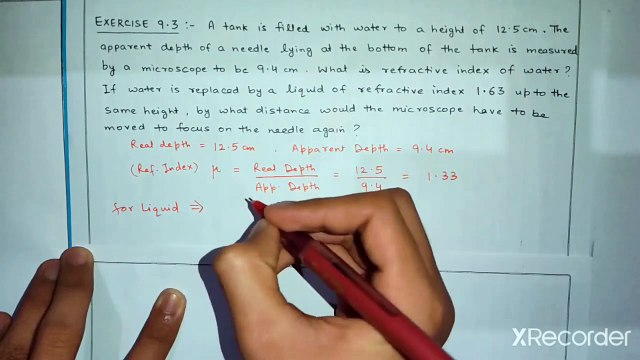 EXERCISE 9.3 :- A tank is filled with water to a height of 12.5 cm. The
apparent depth of a needle lying at the bottom of the tank is measured
by a microscope to be 9.4 cm. What is refractive index of water?
If water is replaced by a liquid of refractive index 1.63 up to the
same height, by what distance would the microscope have to be
moved to focus on the needle again?
Real depth = 12.5 cm , Apparent Depth = 9.4 cm
(Ref. Index) μ = Real Depth / App. Depth = 12.5 / 9.4 = 1.33
for Liquid ⇒
XRecorder